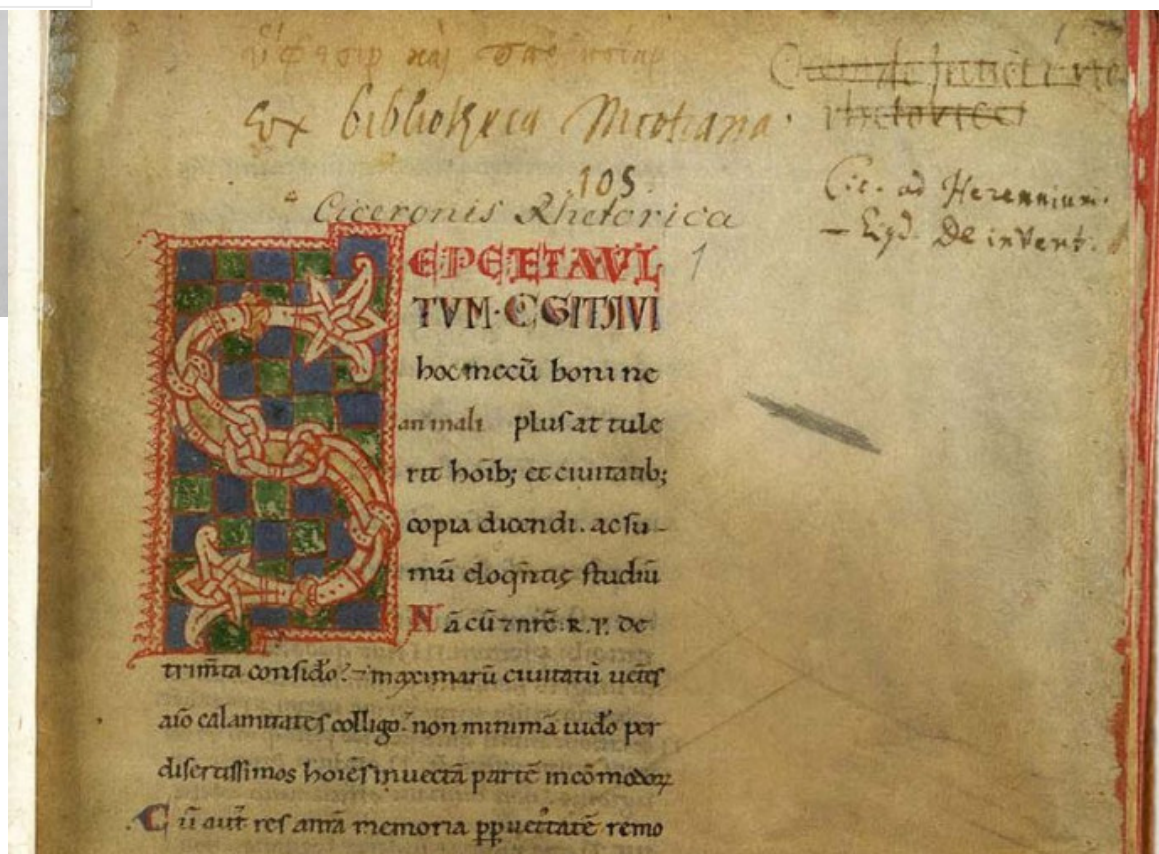 Ex bibliotheca Nicotiana.
105.
Ciceronis Rhetorica
rhetorice
Cic. ad Herennium.
– Ejd. De invent. 1
SEPE ET MVL 1
TVM·COGITAVI
hoc mecū boni ne
an mali pluſ at tule
rit hoib; et ciuitatib;
copia dicendi. ac ſu-
mū eloqn̄tię ſtudiū
Nā cū ⁊ nrē .R.P. de
trim̄ta conſido. ⁊ maximarū ciuitatū ueteſ
aīo calamitateſ colligo. non minimā uido per
diſertiſſimos hoieſ inuectā partē incōmodoꝝ
Cū aut̄ reſ
memoria
remo